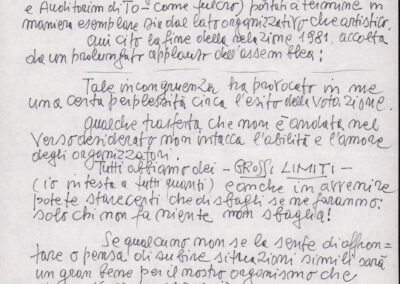 e Auditorium di To - come fulcro) portati a termine in
maniera esemplare sia dal lato organizzativo che artistico.
Qui cito la fine della relazione 1981, accolta
da un prolungato applauso dell'assemblea:
Tale incongruenza ha provocato in me
una certa perplessità circa l'esito della votazione.
Qualche trasferta che non è andata nel
verso desiderato non intacca l'abilità e l'amore
degli organizzatori.
Tutti abbiamo dei - GROSSI LIMITI -
(io in testa a tutti quanti) e anche in avvenire
potete star certi che di sbagli se ne faranno:
solo chi non fa niente non sbaglia!
Se qualcuno non se la sente di affron=
tare o pensa di subire situazioni simili sarà
un gran bene per il nostro organismo che